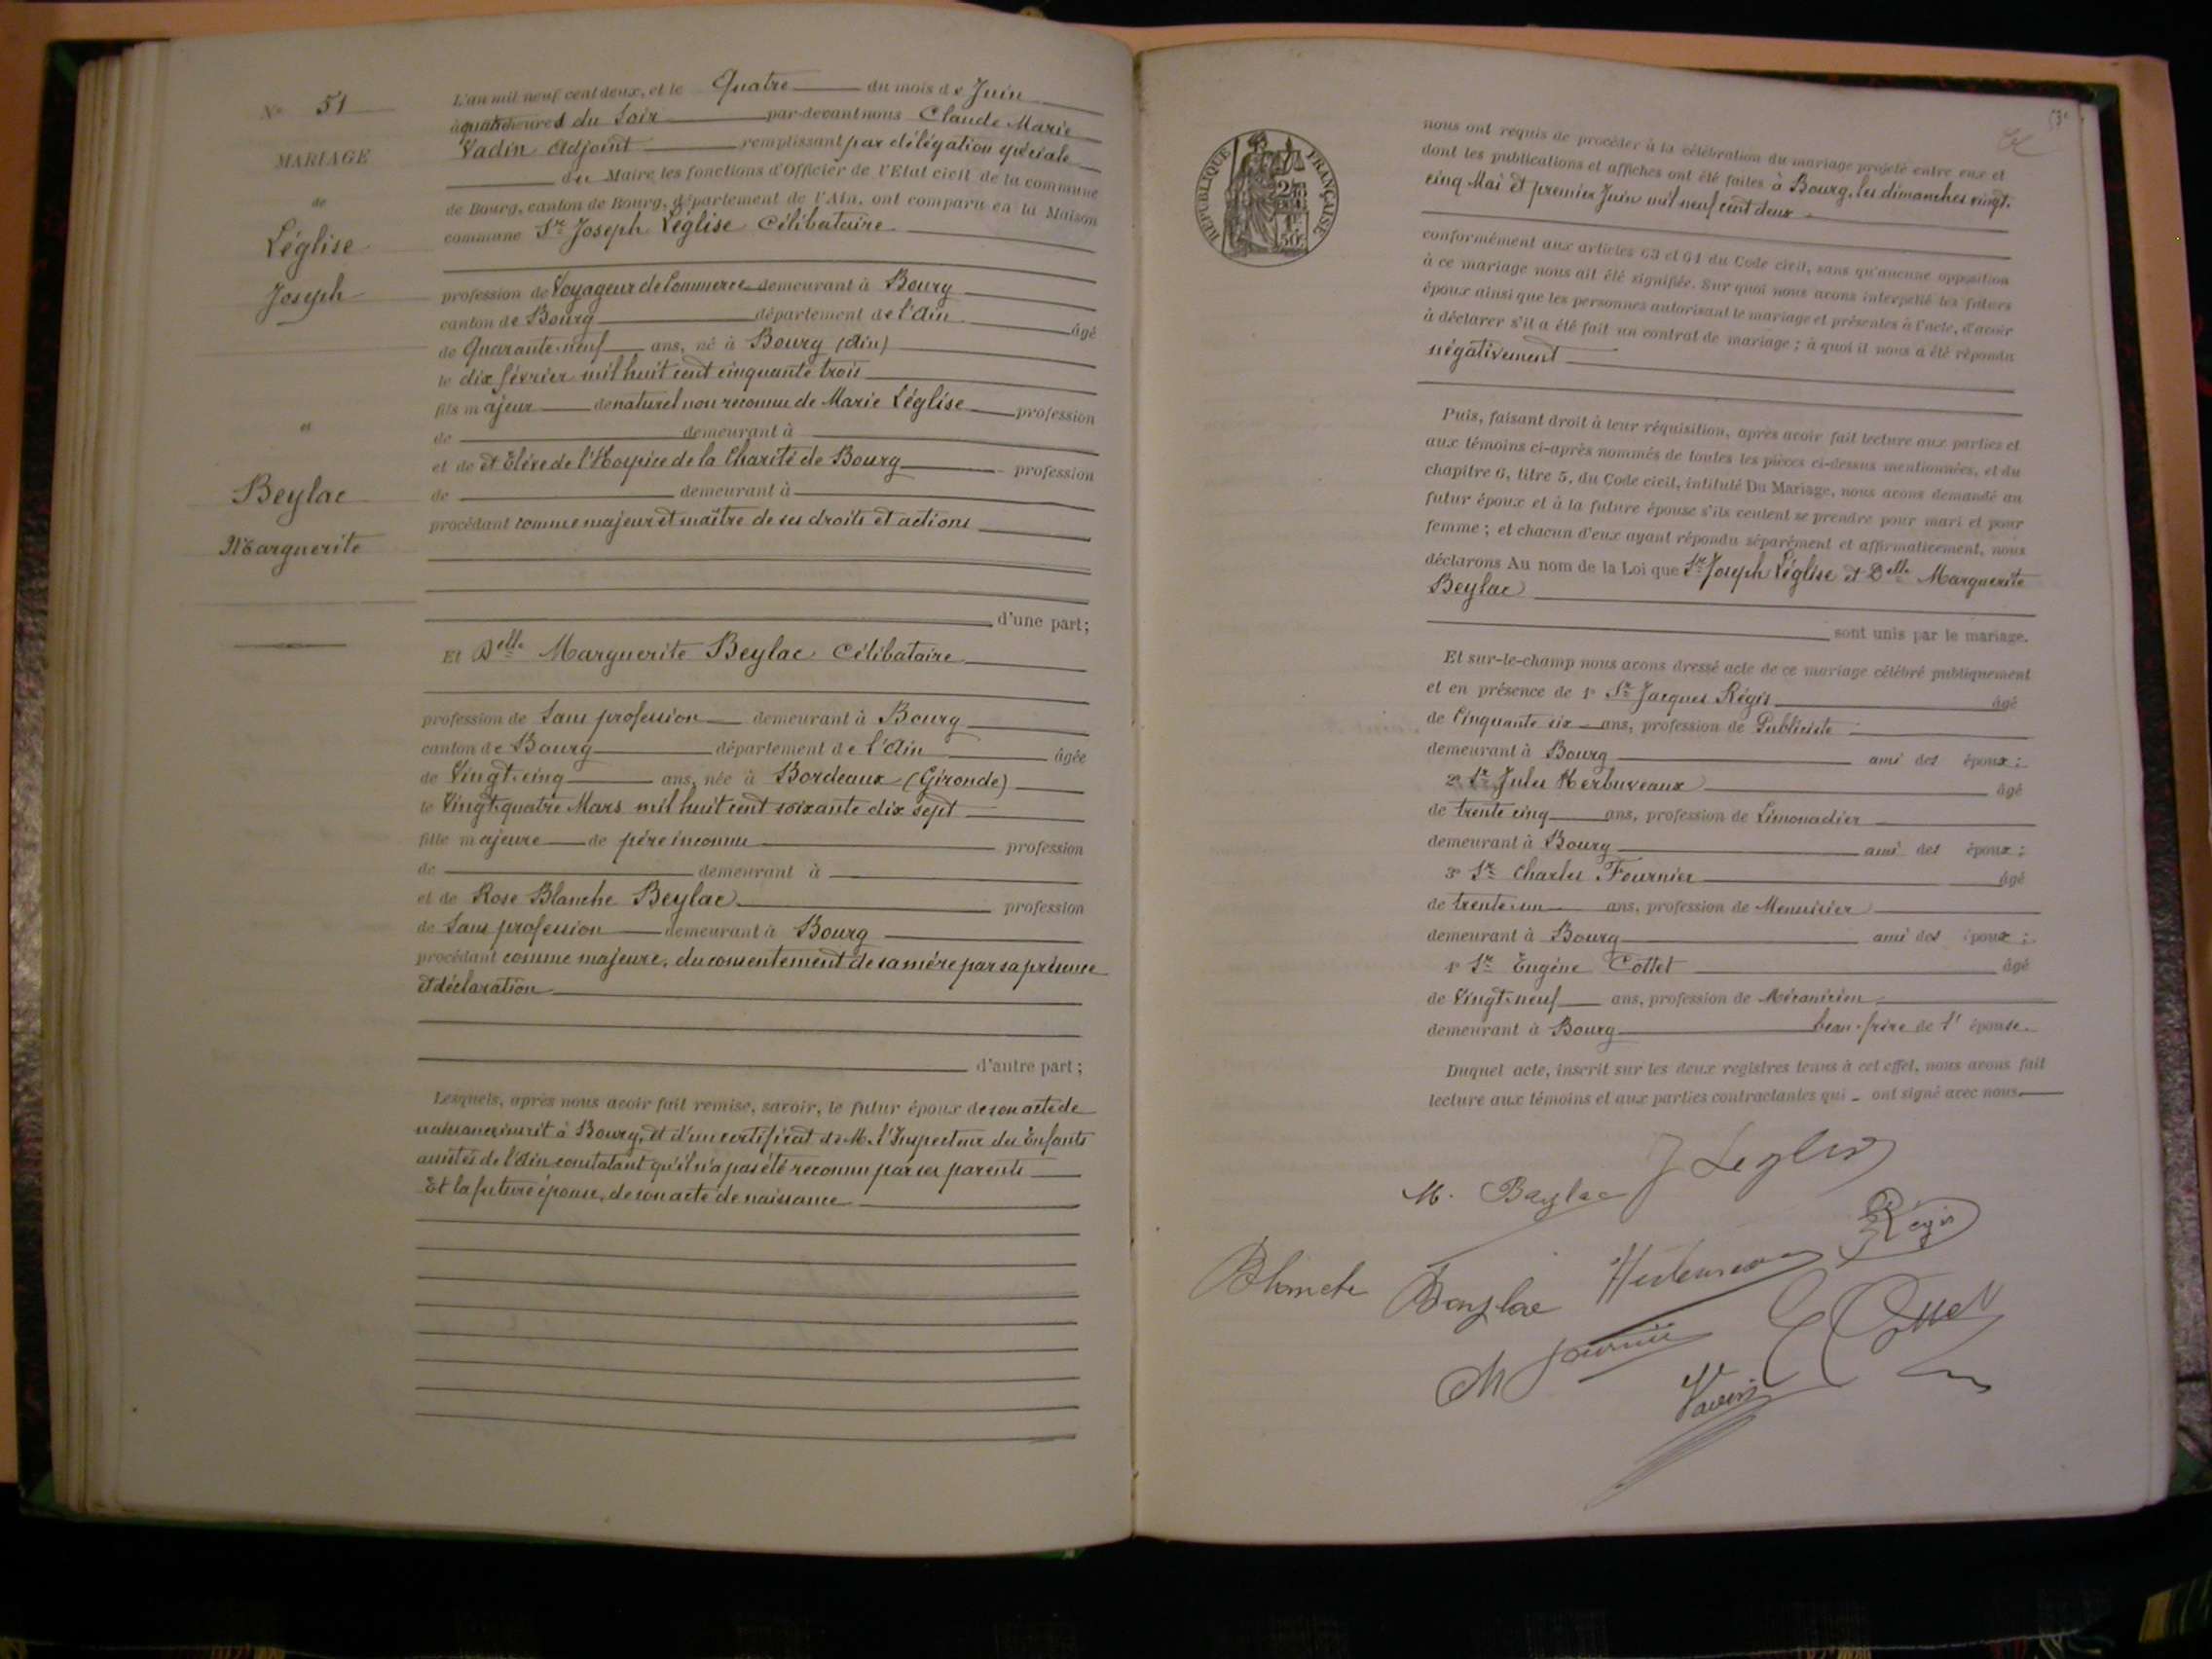 N° 51
MARIAGE
de
Léglise
Joseph
et
Beylac
Marguerite
L'an mil neuf cent deux, et le Quatre du mois de Juin
à quatre heures du Soir par-devant nous Claude Marie
Vadin Adjoint remplissant par délégation spéciale
du Maire les fonctions d'Officier de l'Etat civil de la commune
de Bourg, canton de Bourg, département de l'Ain, ont comparu en la Maison
commune Sr Joseph Léglise Célibataire
profession de Voyageur de Commerce demeurant à Bourg
canton de Bourg département de l'Ain âgé
de Quarante-neuf ans, né à Bourg (Ain)
le dix février mil huit cent cinquante trois
fils majeur de naturel non reconnu de Marie Léglise profession
de demeurant à
et de et Elève de l'Hospice de la Charité de Bourg profession
de demeurant à
procédant comme majeur et maître de ses droits et actions
d'une part;
Et Delle Marguerite Beylac Célibataire
profession de Sans profession demeurant à Bourg
canton de Bourg département de l'Ain âgée
de Vingt-cinq ans, née à Bordeaux (Gironde)
le Vingt-quatre Mars mil huit cent soixante dix sept
fille majeure de père inconnu profession
de demeurant à
et de Rose Blanche Beylac profession
de Sans profession demeurant à Bourg
procédant comme majeure, du consentement de sa mère par sa présence
et déclaration
d'autre part;
Lesquels, après nous avoir fait remise, savoir, le futur époux de son acte de
naissance inscrit à Bourg, et d'un certificat de M. l'Inspecteur des Enfants
assistés de l'Ain constatant qu'il n'a pas été reconnu par ses parents
Et la future épouse, de son acte de naissance
RÉPUBLIQUE FRANÇAISE
nous ont requis de procéder à la célébration du mariage projeté entre eux et
dont les publications et affiches ont été faites à Bourg, les dimanches vingt-
cinq Mai et premier Juin mil neuf cent deux
conformément aux articles 63 et 64 du Code civil, sans qu'aucune opposition
à ce mariage nous ait été signifiée. Sur quoi nous avons interpellé les futurs
époux ainsi que les personnes autorisant le mariage et présentes à l'acte, d'avoir
à déclarer s'il a été fait un contrat de mariage; à quoi il nous a été répondu
négativement
Puis, faisant droit à leur réquisition, après avoir fait lecture aux parties et
aux témoins ci-après nommés de toutes les pièces ci-dessus mentionnées, et du
chapitre 6, titre 5, du Code civil, intitulé Du Mariage, nous avons demandé au
futur époux et à la future épouse s'ils veulent se prendre pour mari et pour
femme; et chacun d'eux ayant répondu séparément et affirmativement, nous
déclarons Au nom de la Loi que Sr Joseph Léglise et Delle Marguerite
Beylac
sont unis par le mariage.
Et sur-le-champ nous avons dressé acte de ce mariage célébré publiquement
et en présence de 1° Sr Jacques Régis âgé
de Cinquante six ans, profession de Publiciste
demeurant à Bourg ami des époux;
2° Sr Jules Herbuveaux âgé
de trente cinq ans, profession de Limonadier
demeurant à Bourg ami des époux;
3° Sr Charles Fournier âgé
de trente-un ans, profession de Menuisier
demeurant à Bourg ami des époux;
4° Sr Eugène Cottet âgé
de Vingt-neuf ans, profession de Mécanicien
demeurant à Bourg beau-frère de l'épouse.
Duquel acte, inscrit sur les deux registres tenus à cet effet, nous avons fait
lecture aux témoins et aux parties contractantes qui ont signé avec nous
J Leglise
M. Baylac
Régis
Blanche Baylac
Ch Fournier
E Cottet
Vadin